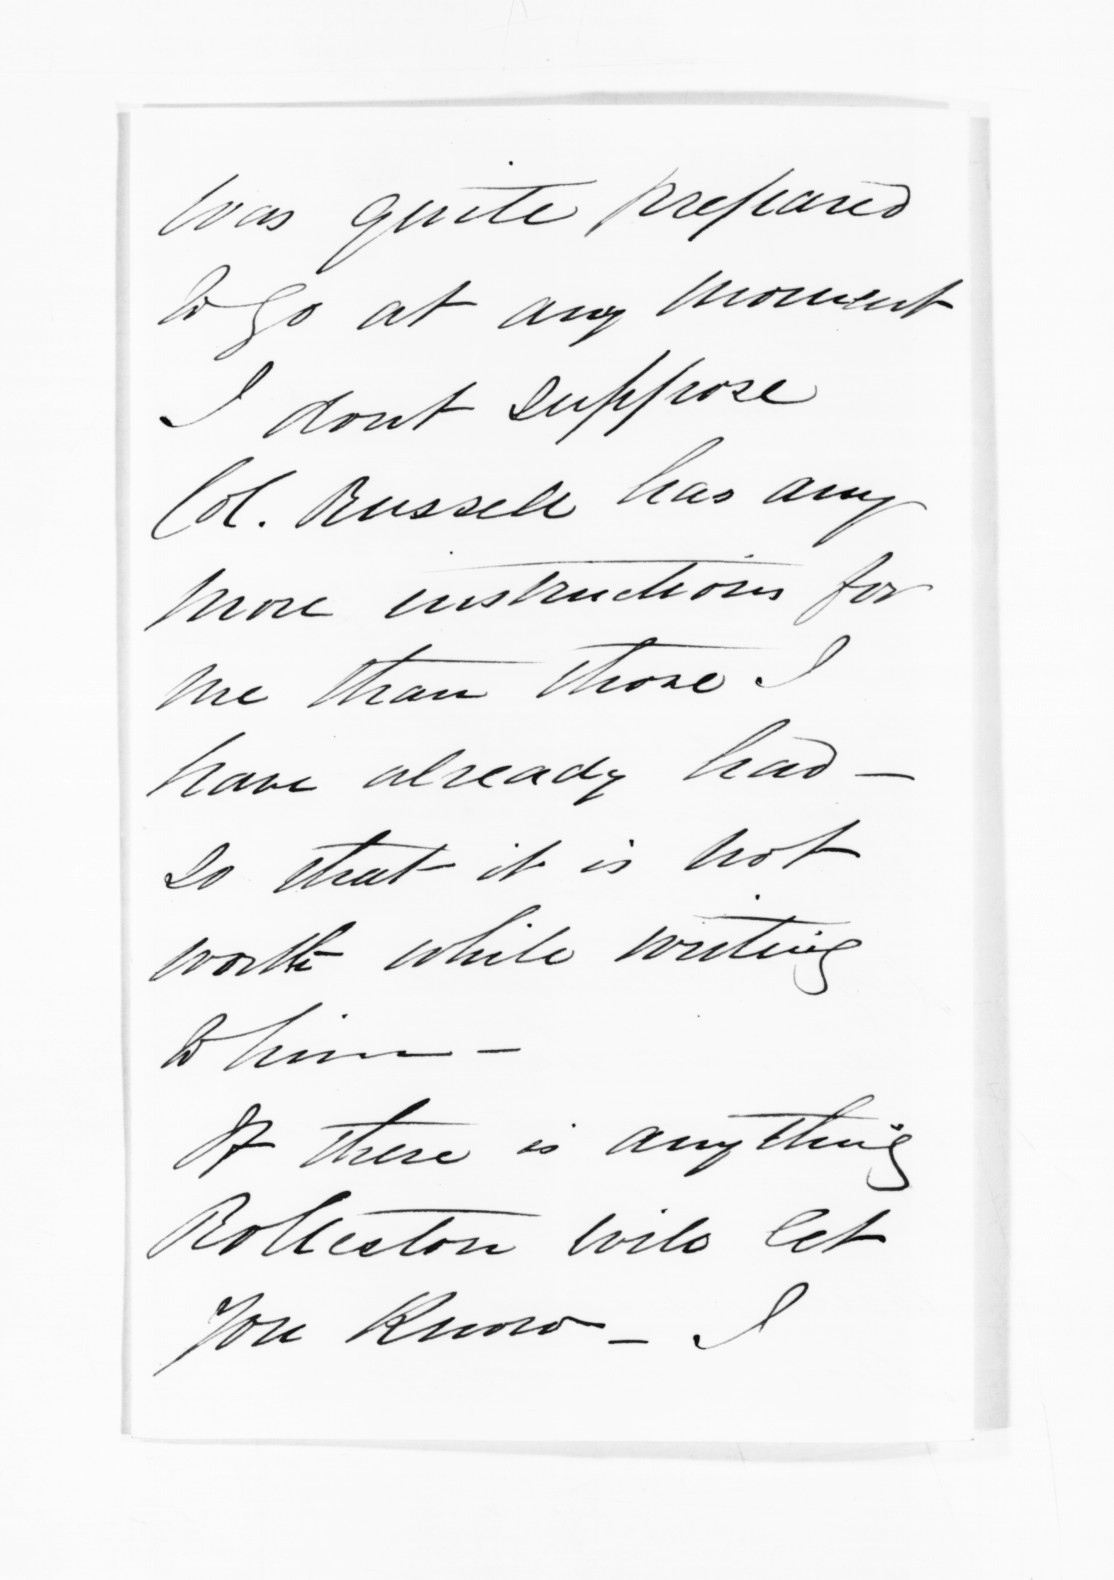 was quite prepared
to go at any moment
I dont suppose
Col. Russell has any
more instructions for
me than those I
have already had –
so that it is not
worth while writing
to him –
If there is anything
Rolleston will let
you know – I